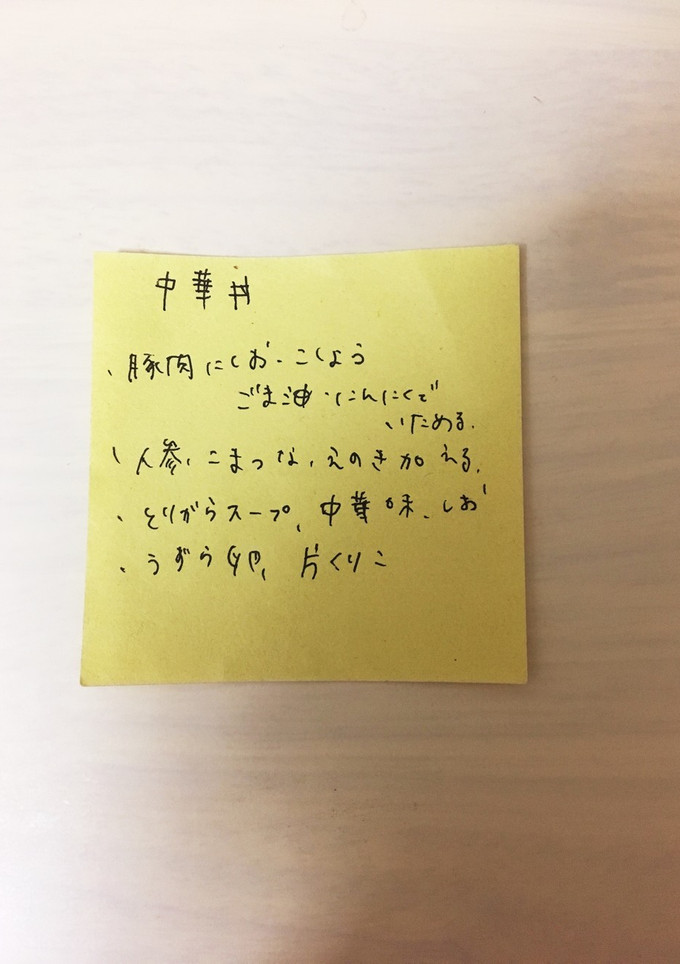 中華丼
、豚肉にしお・こしょう
ごま油・にんにくで
いためる.
、人参、こまつな、えのき加える.
、とりがらスープ、中華味、しお
、うずら卵、片くりこ